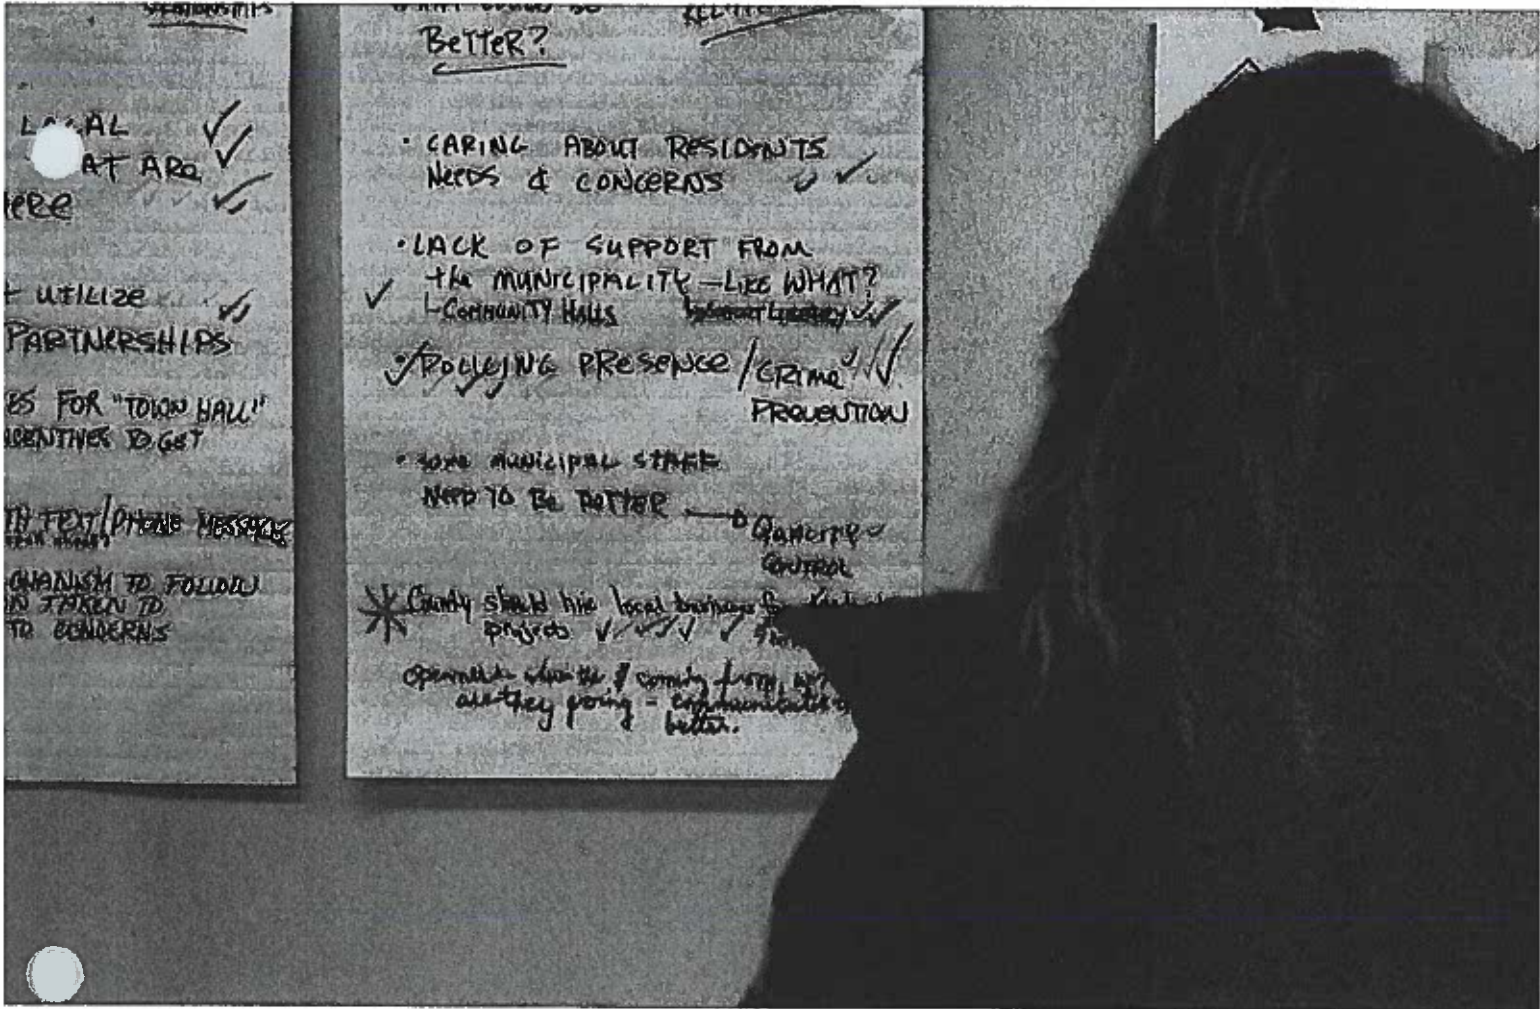 RELATIONSHIPS
LOCAL
AT ARE
HERE
+ UTILIZE
PARTNERSHIPS
ES FOR "TOWN HALL"
CENTIVES TO GET
TH TEXT/PHONE MESSAGES
CHANISM TO FOLLOW
N TAKEN TO
TO CONCERNS
WHAT COULD BE
BETTER?
• CARING ABOUT RESIDENTS
NEEDS & CONCERNS
• LACK OF SUPPORT FROM
the MUNICIPALITY — LIKE WHAT?
COMMUNITY HALLS
• POLICING PRESENCE / CRIME
PREVENTION
• SOME MUNICIPAL STAFF
NEED TO BE BETTER
QUALITY
CONTROL
County should hire local business for
projects
where the $ coming from,
are they going -
better.